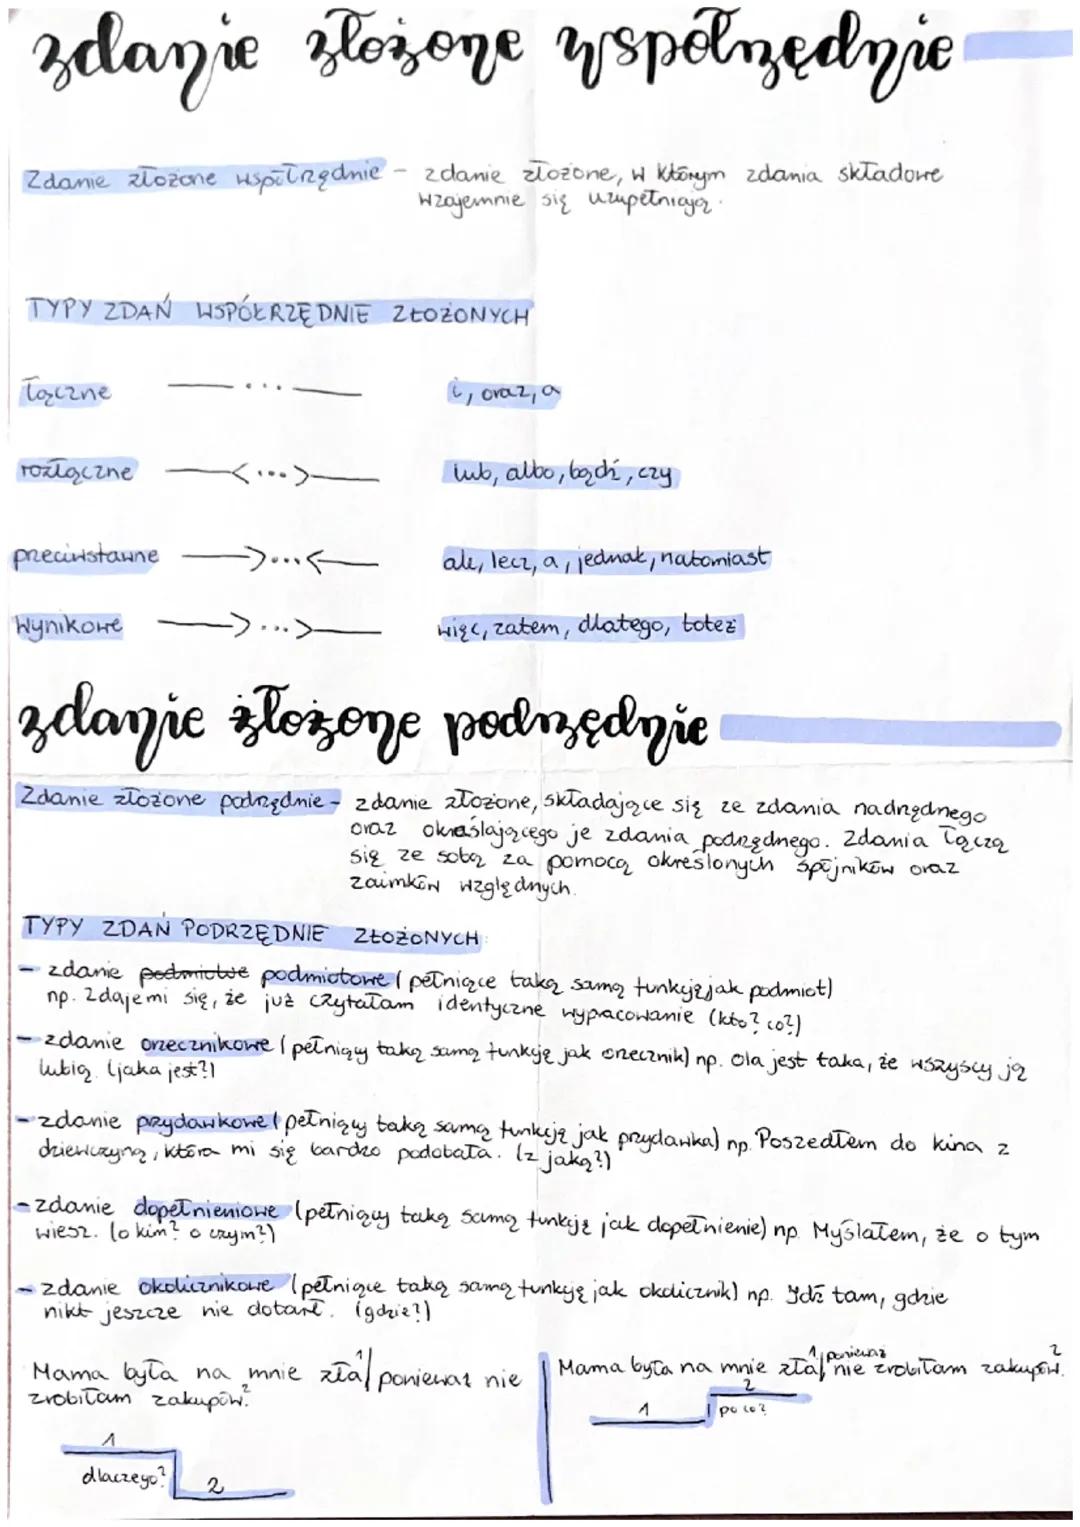 zdanie złożone współrzędnie
Zdanie złożone współrzędnie - zdanie złożone, w którym zdania składowe
wzajemnie się uzupełniają.
TYPY ZDAŃ WSPÓŁRZĘDNIE ZŁOŻONYCH
łączne —...— i, oraz, a
rozłączne —<...>— lub, albo, bądź, czy
przeciwstawne —>...<— ale, lecz, a, jednak, natomiast
wynikowe —>...>— więc, zatem, dlatego, toteż
zdanie złożone podrzędnie
Zdanie złożone podrzędnie - zdanie złożone, składające się ze zdania nadrzędnego
oraz określającego je zdania podrzędnego. Zdania łączą
się ze sobą za pomocą określonych spójników oraz
zaimków względnych.
TYPY ZDAŃ PODRZĘDNIE ZŁOŻONYCH:
- zdanie podmiotwe podmiotowe (pełniące taką samą funkcję jak podmiot)
np. Zdaje mi się, że już czytałam identyczne wypracowanie (kto? co?)
- zdanie orzecznikowe (pełniący taką samą funkcję jak orzecznik) np. Ola jest taka, że wszyscy ją
lubią. (jaka jest?)
- zdanie przydawkowe (pełniący taką samą funkcję jak przydawka) np. Poszedłem do kina z
dziewczyną, która mi się bardzo podobała. (z jaką?)
- zdanie dopełnieniowe (pełniący taką samą funkcję jak dopełnienie) np. Myślałem, że o tym
wiesz. (o kim? o czym?)
- zdanie okolicznikowe (pełniące taką samą funkcję jak okolicznik) np. Idź tam, gdzie
nikt jeszcze nie dotarł. (gdzie?)
Mama była na mnie zła,¹/ ponieważ nie
zrobiłam zakupów.²
1
dlaczego?
2
Mama była na mnie zła,¹/ ponieważ nie zrobiłam zakupów.²
2
1 po co?